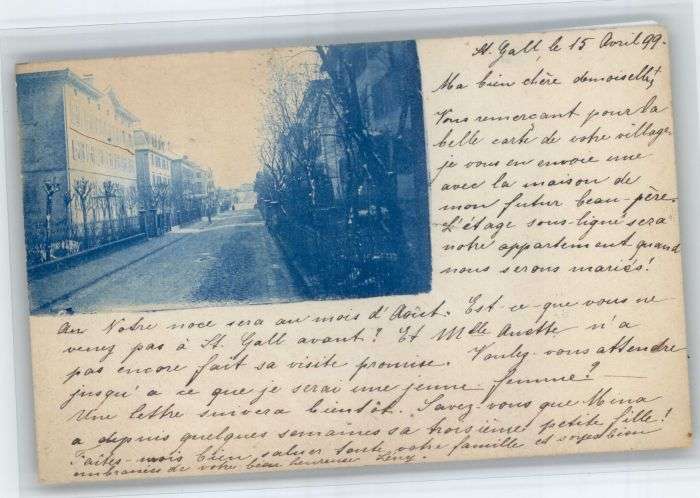 St. Gall, le 15 Avril 99.
Ma bien chère demoiselle!
Vous remerçant pour la
belle carte de votre village,
je vous en envoie une
avec la maison de
mon futur beau-père.
L'étage sous-ligné sera
notre appartement quand
nous serons mariés!
Notre noce sera au mois d'Août. Est-ce que vous ne
venez pas à St. Gall avant? Et Mlle Anette n'a
pas encore fait sa visite promise. Voulez-vous attendre
jusqu'à ce que je serai une jeune femme?
Une lettre suivera bientôt. Savez-vous que Mina
a depuis quelques semaines sa troisième petite fille!
Faites-mois bien saluer toute votre famille et soyez bien
embrassée de votre bien heureuse